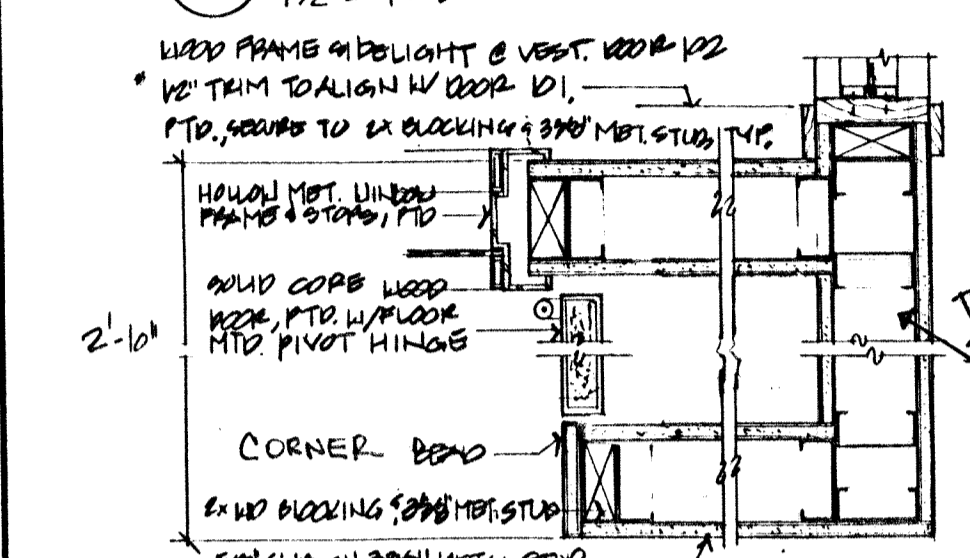 WOOD FRAME SIDELIGHT @ VEST. DOOR 102
* 1/2" TRIM TO ALIGN W/ DOOR 101,
PTD., SECURE TO 2X BLOCKING & 3 5/8" MET. STUD, TYP.
HOLLOW MET. WINDOW
FRAME & STOPS, PTD
SOLID CORE WOOD
DOOR, PTD. W/FLOOR
MTD. PIVOT HINGE
2'-10"
CORNER BEAD
2x WD BLOCKING & 3 5/8" MET. STUD